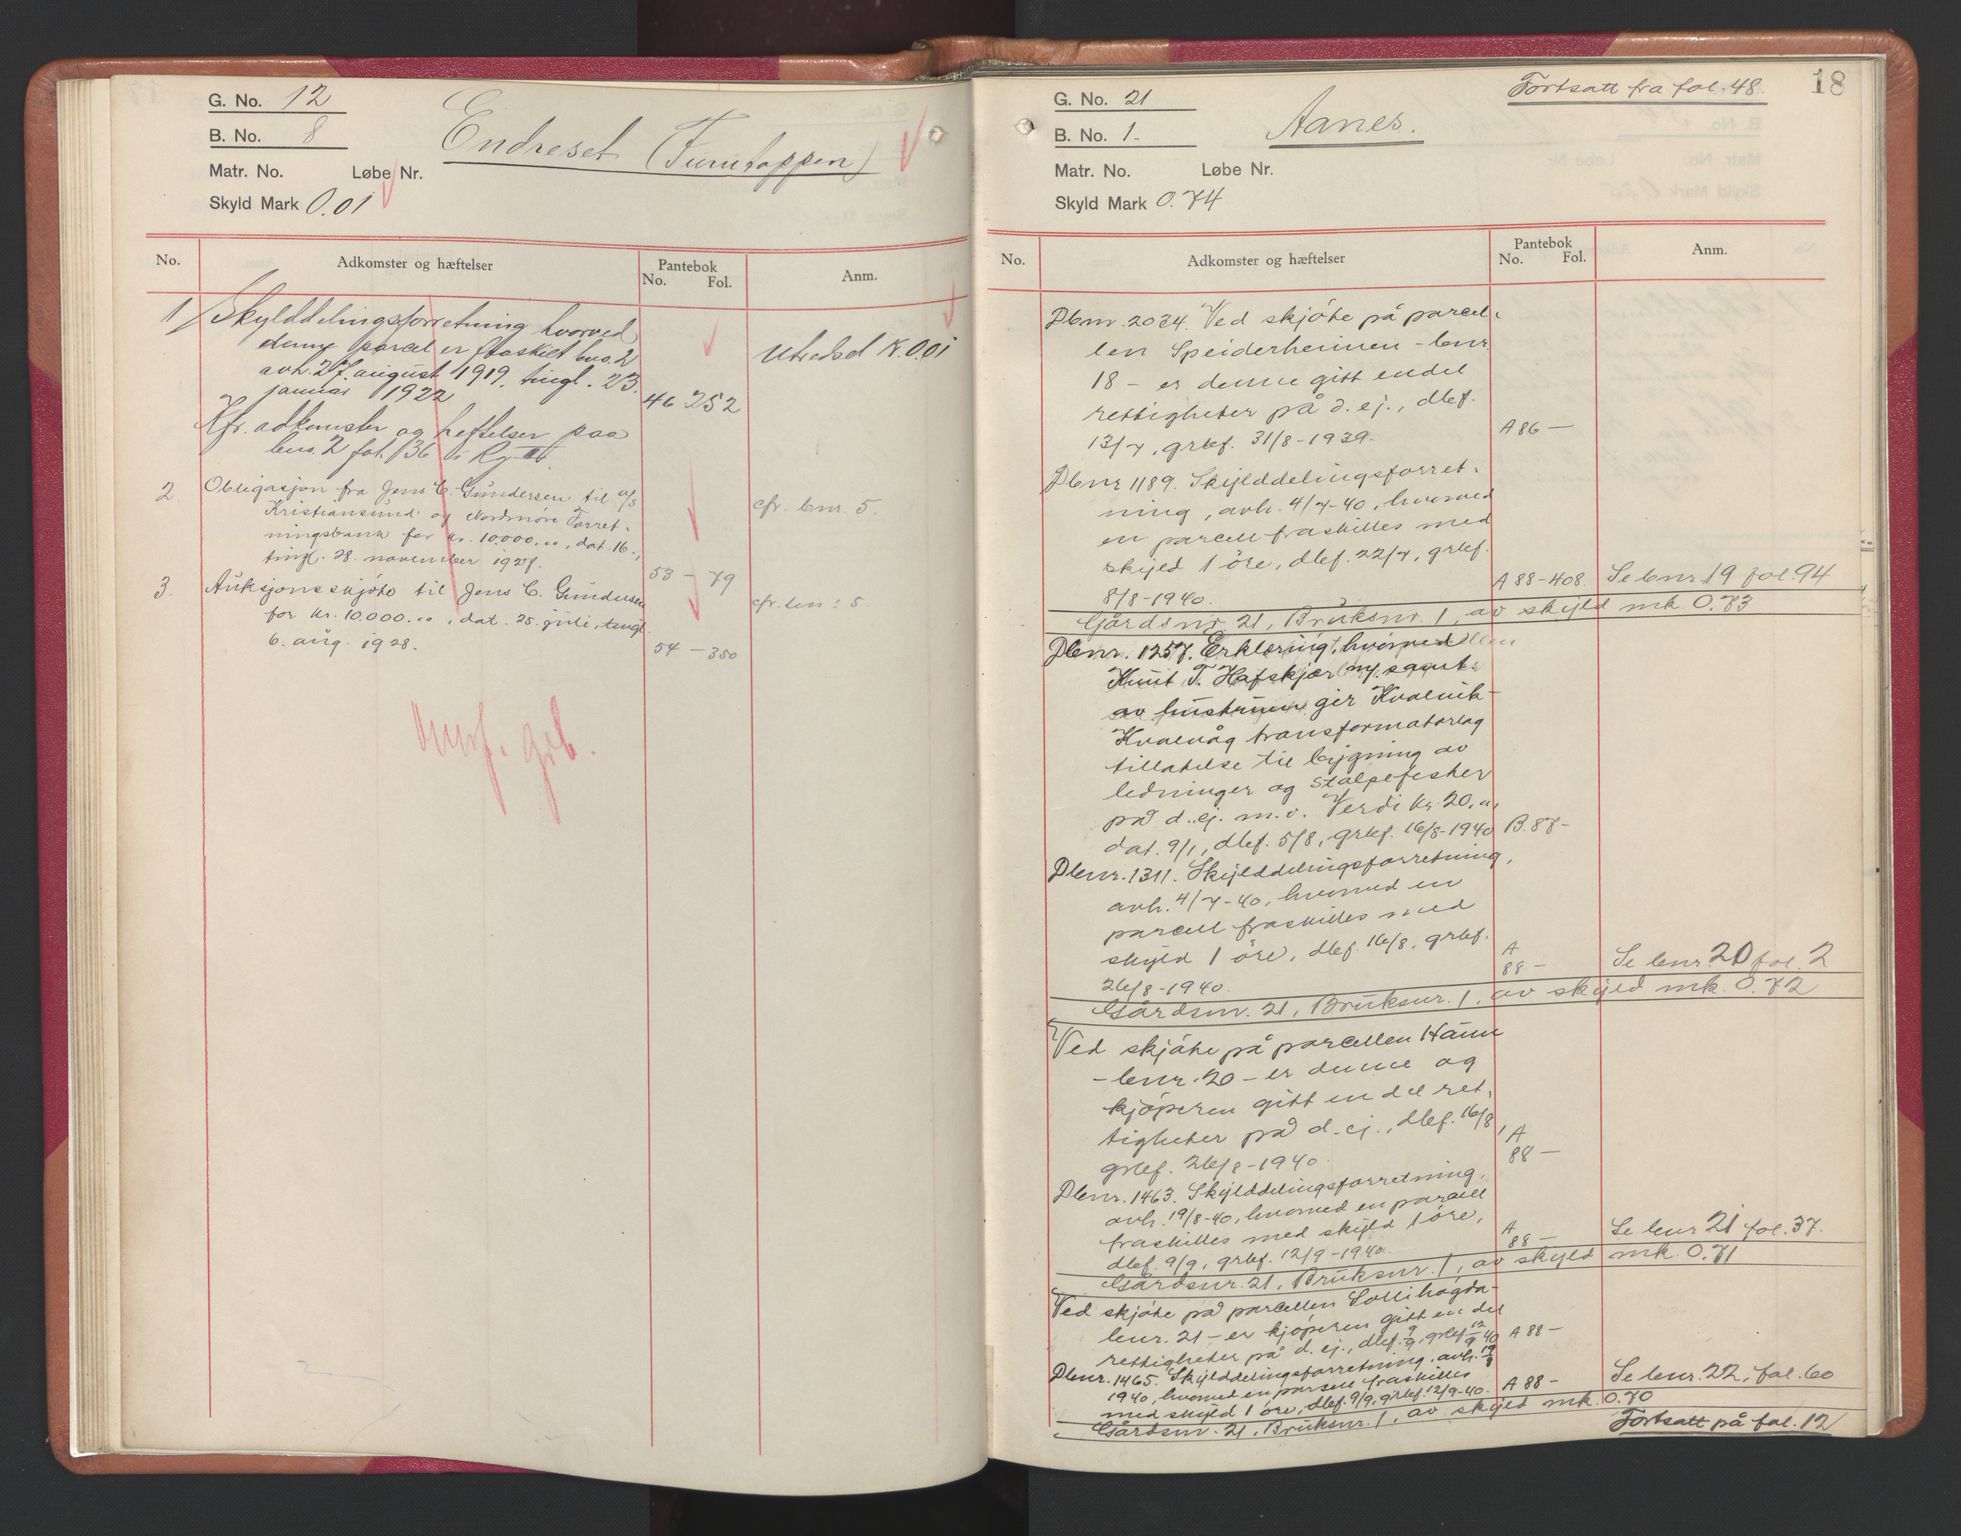 G. No. 12
B. No. 8
Endreset (Furutoppen)
Matr. No. Løbe Nr.
Skyld Mark 0.01
No. Adkomster og hæftelser Pantebok No. Fol. Anm.
1/ Skylddelingsforretning hvorved
denne parcel er fraskilt bno. 2
avh. 27. august 1919, tingl. 23.
januar 1922 46 252 Utredsel K. 0.01
Kfr. adkomster og heftelser paa
bno. 2 fol. 136 i Rg.
2. Obligasjon fra Jens C. Gundersen til a/s
Kristiansund og Nordmøre Forret-
ningsbank for kr. 10000.00, dat. 16.,
tingl. 28. november 1927. 53 - 79 cfr. bnr. 5.
3. Auksjonsskjøte til Jens C. Gundersen
for kr. 10.000.00, dat. 25. juli, tingl.
6. aug. 1928. 54 - 350 cfr. bnr. 5.
grb.
18
Fortsatt fra fol. 48.
G. No. 21
B. No. 1.
Aanes.
Matr. No. Løbe Nr.
Skyld Mark 0.74
No. Adkomster og hæftelser Pantebok No. Fol. Anm.
Dbnr. 2034. Ved skjøte på parcel-
len Speiderheimen - bnr.
18 - er denne gitt endel
rettigheter på d. ej., dbf.
13/7, grbf. 31/8-1939. A 86 —
Dbnr 1189. Skylddelingsforret-
ning, avh. 4/7-40, hvorved
en parcell fraskilles med
skyld 1 öre, dbf. 22/7, grbf.
8/8-1940. A 88-408. Se bnr. 19 fol. 94
Gårdsnr. 21, Bruksnr. 1, av skyld mk. 0.73
Dbnr. 1257. Erklæring, hvorved
Knut T. Hafskjær
gir Kvalvik-
Kvalvåg transformatorlag
tillatelse til bygning av
ledninger og stolpefester
på d. ej. m.v. Verdi kr. 20,
dat. 9/1, dbf. 5/8, grbf. 16/8-1940 B. 87-
Dbnr. 1311. Skylddelingsforretning,
avh. 4/7-40, hvorved en
parcell fraskilles med
skyld 1 öre, dbf. 16/8, grbf.
26/8-1940. A 88 — Se bnr. 20 fol. 2
Gårdsnr. 21, Bruksnr. 1, av skyld mk. 0.72
Ved skjøte på parcellen Haun
- bnr. 20 - er denne og
kjöperen gitt en del ret-
tigheter på d. ej., dbf. 16/8,
grbf. 26/8-1940. A 88 —
Dbnr. 1463. Skylddelingsforretning,
avh. 19/8-40, hvorved en parcell
fraskilles med skyld 1 öre,
dbf. 9/9, grbf. 12/9-1940. A 88 — Se bnr. 21 fol. 37.
Gårdsnr. 21, Bruksnr. 1, av skyld mk. 0.71
Ved skjöte på parcellen Sollihögda -
bnr. 21 - er kjöperen gitt en del
rettigheter på d. ej., dbf. 9/9, grbf. 12/9 40 A 88 —
Dbnr. 1465. Skylddelingsforretning, avh. 19/8
1940, hvorved en parsell fraskilles
med skyld 1 öre, dbf. 9/9, grbf. 12/9-40. A 88 — Se bnr. 22, fol. 60
Gårdsnr. 21, Bruksnr. 1, av skyld mk. 0.70
Fortsatt på fol. 12